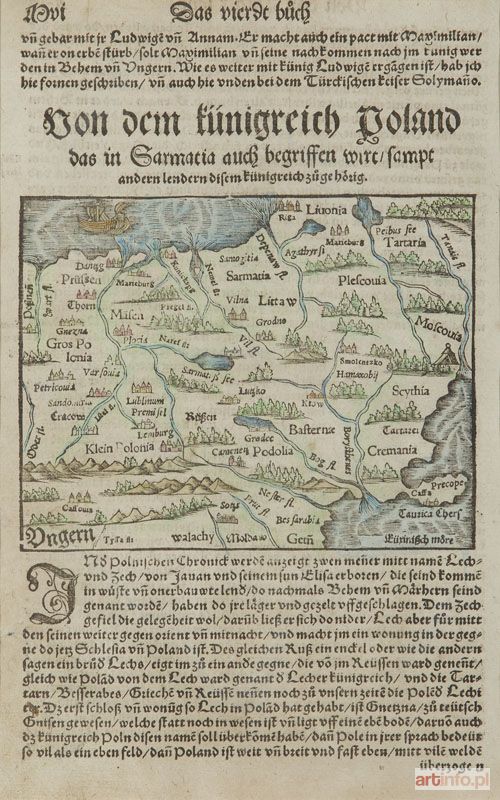 Das vierdt bůch
vñ gebar mit jr Ludwigẽ vñ Annam. Er macht auch ein pact mit Maximilian/
wañ er on erbẽ stürb/ solt Maximilian vñ seine nachkommen nach jm künig wer
den in Behem vñ Vngern. Wie es weiter mit künig Ludwigẽ ergãgen ist/ hab jch
hie fornen geschriben/ vñ auch hie vnden bei dem Türckischen keiser Solymaño.
Von dem künigreich Poland
das in Sarmatia auch begriffen wirt/ sampt
andern lendern disem künigreich zůgehörig.
Riga
Liuonia
Marieburg
Peibus see
Tartaria
Tanais fl.
Agathyrsi
Dantzg
Marieburg
Samogitia
Sarmatia
Plescouia
Prüssen
Thorn
Masen
Pregel fl.
Vilna
Littaw
Moscouia
Gnezna
Gros Po
lonia
Grodno
Vil fl.
Smolenzko
Hamaxobij
Varsouia
Petricouia
Sarmat. si see
Lutzko
Scythia
Sandomiria
Cracow
Lublinum
Premisel
Reüssen
Kiow
Basternæ
Borysthenes
Tartarei
Lemburg
Klein Polonia
Grodec
Camenetz
Podolia
Bog fl.
Cremania
Precope
Caffa
Cassouia
Nester fl.
Prut fl.
Taurica Chers
Vngern
Tyssa fl.
walachy
Moldaw
Bessarabia
Getñ
JNn Polnischen Chronick werdẽ anzeigt zwen meñer mitt namẽ Lech
vnd Zech/ von Jauan vnd seinem sun Elisa erboren/ die seind kommẽ
in wüste vñ onerbauwte lend/ do nachmals Behem vñ Märhern seind
genant wordẽ/ haben do jre läger vnd gezelt vffgeschlagen. Dem Zech
gefiel die gelegẽheit wol/ darüb ließ er sich do nider/ Lech aber für mitt
den seinen weiter gegen orient vñ mitnacht/ vnd macht jm ein wonung in der gegẽ
ne do jetz Schlesia vñ Poland ist. Des gleichen Ruß ein enckel oder wie die andern
sagen ein brůd Lechs/ eigt im zů ein ande gegne/ die võ jm Reussen ward geneñt/
gleich wie Polãd von dem Lech ward genant ð Lecher künigreich/ vnd die Tar-
tarn/ Besserabes/ Griechẽ vñ Reüssẽ neñen noch zů vnsern zeitẽ die Polẽð Lechi
ten. Dz erst schloß vñ wonũg so Lech in Polãd hat gehabt/ ist Gnetzna/ zů teütsch
Gnisen gewesen/ welche statt noch in wesen ist vñ ligt vff einẽ ebẽ bodẽ/ darũð auch
dz künigreich Poln disen namẽ soll überkõmẽ habẽ/ dañ Pole in jrer sprach bedeüt
so vil als ein eben feld/ dañ Poland ist weit vñ breit vnd fast eben/ mitt vilẽ weldẽ
überzogen
artinfo.pl